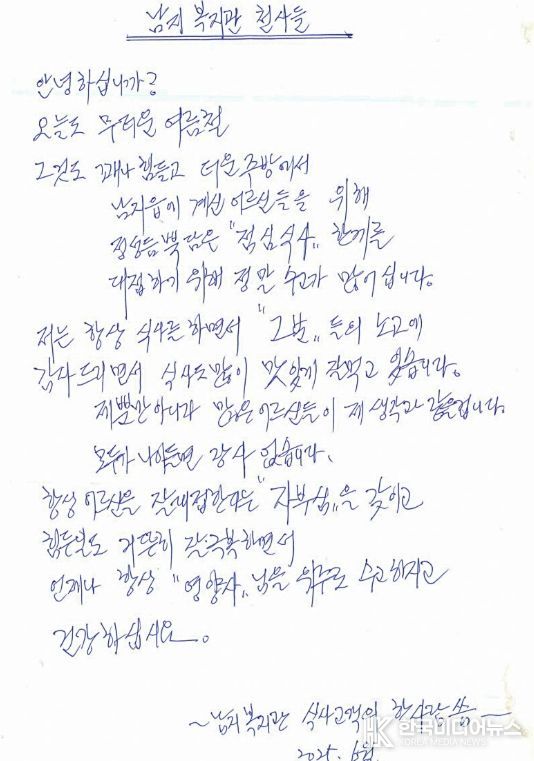 남지 복지관 천사들
안녕하십니까?
오늘도 무더운 여름철
그것도 꽤나 힘들고 더운 주방에서
남지읍에 계신 어르신들을 위해
정성듬뿍 담은 "점심식사" 한끼를
대접하기 위해 정말 수고가 많이십니다.
저는 항상 식사를 하면서 "그분"들의 노고에
감사드리면서 식사도 많이 맛있게 잘먹고 있습니다.
제뿐만 아니라 많은 어르신들이 제 생각과 같을겁니다.
모두가 나이들면 장사 없습니다.
항상 어르신을 잘대접한다는 "자부심"을 갖이고
힘든일도 거뜬히 잘극복하면서
언제나 항상 "영양사"님을 위주로 수고하시고
건강하십시요.
~남지복지관 식사고객의 한사람 씀~
2025. 6월
한국미디어뉴스
KOREA MEDIA NEWS